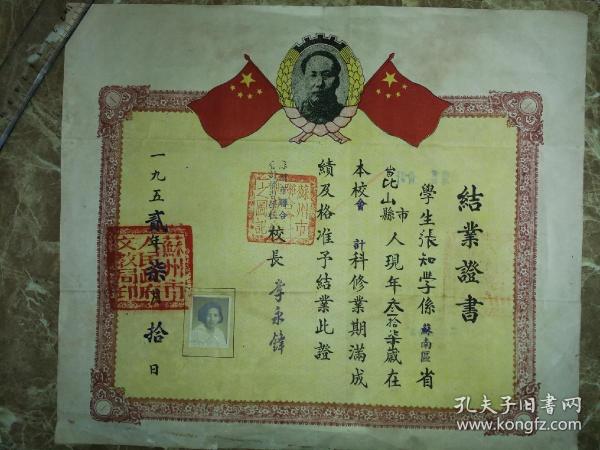 結業證書
學生張知學係蘇南區省
崑山縣市人現年叁拾柒歲在
本校會計科修業期滿成
績及格准予結業此證
校長李永鋒
一九五貳年柒月拾日
蘇州市
人民政府
文教局印
孔夫子旧書网
www.kongfz.com